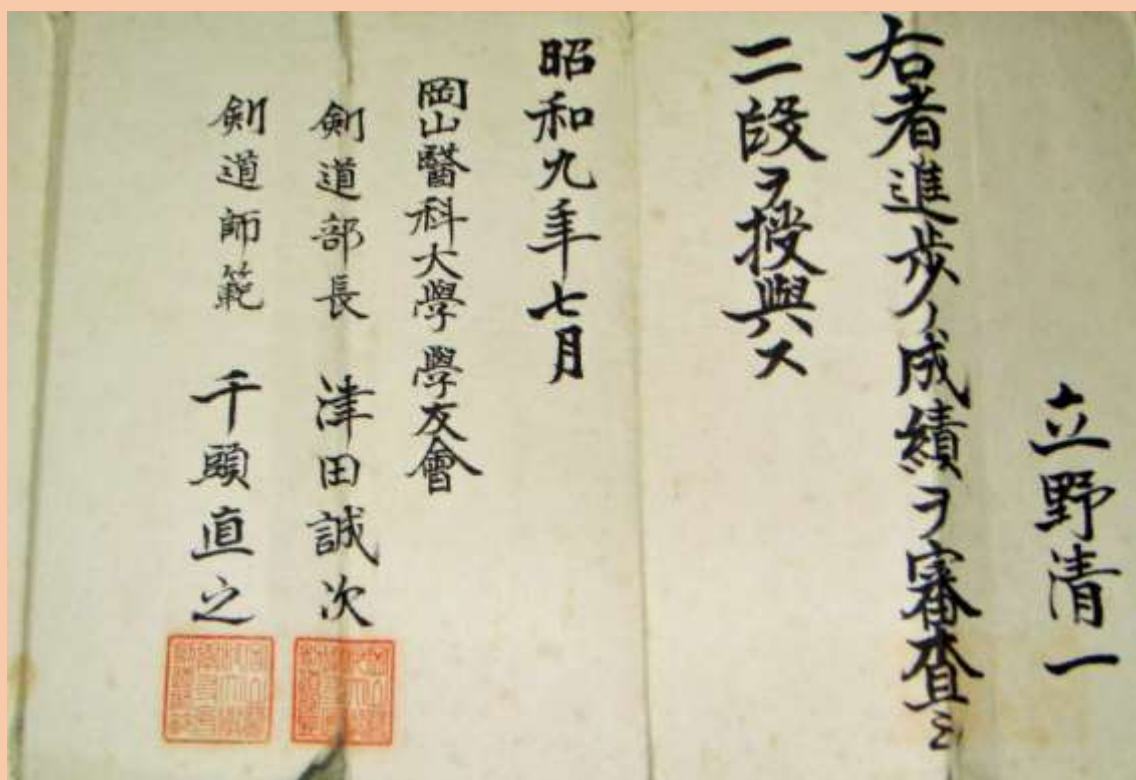 立野清一
右者進歩ノ成績ヲ審査シ
二段ヲ授與ス
昭和九年七月
岡山醫科大學學友會
剣道部長 津田誠次
剣道師範 千頭直之